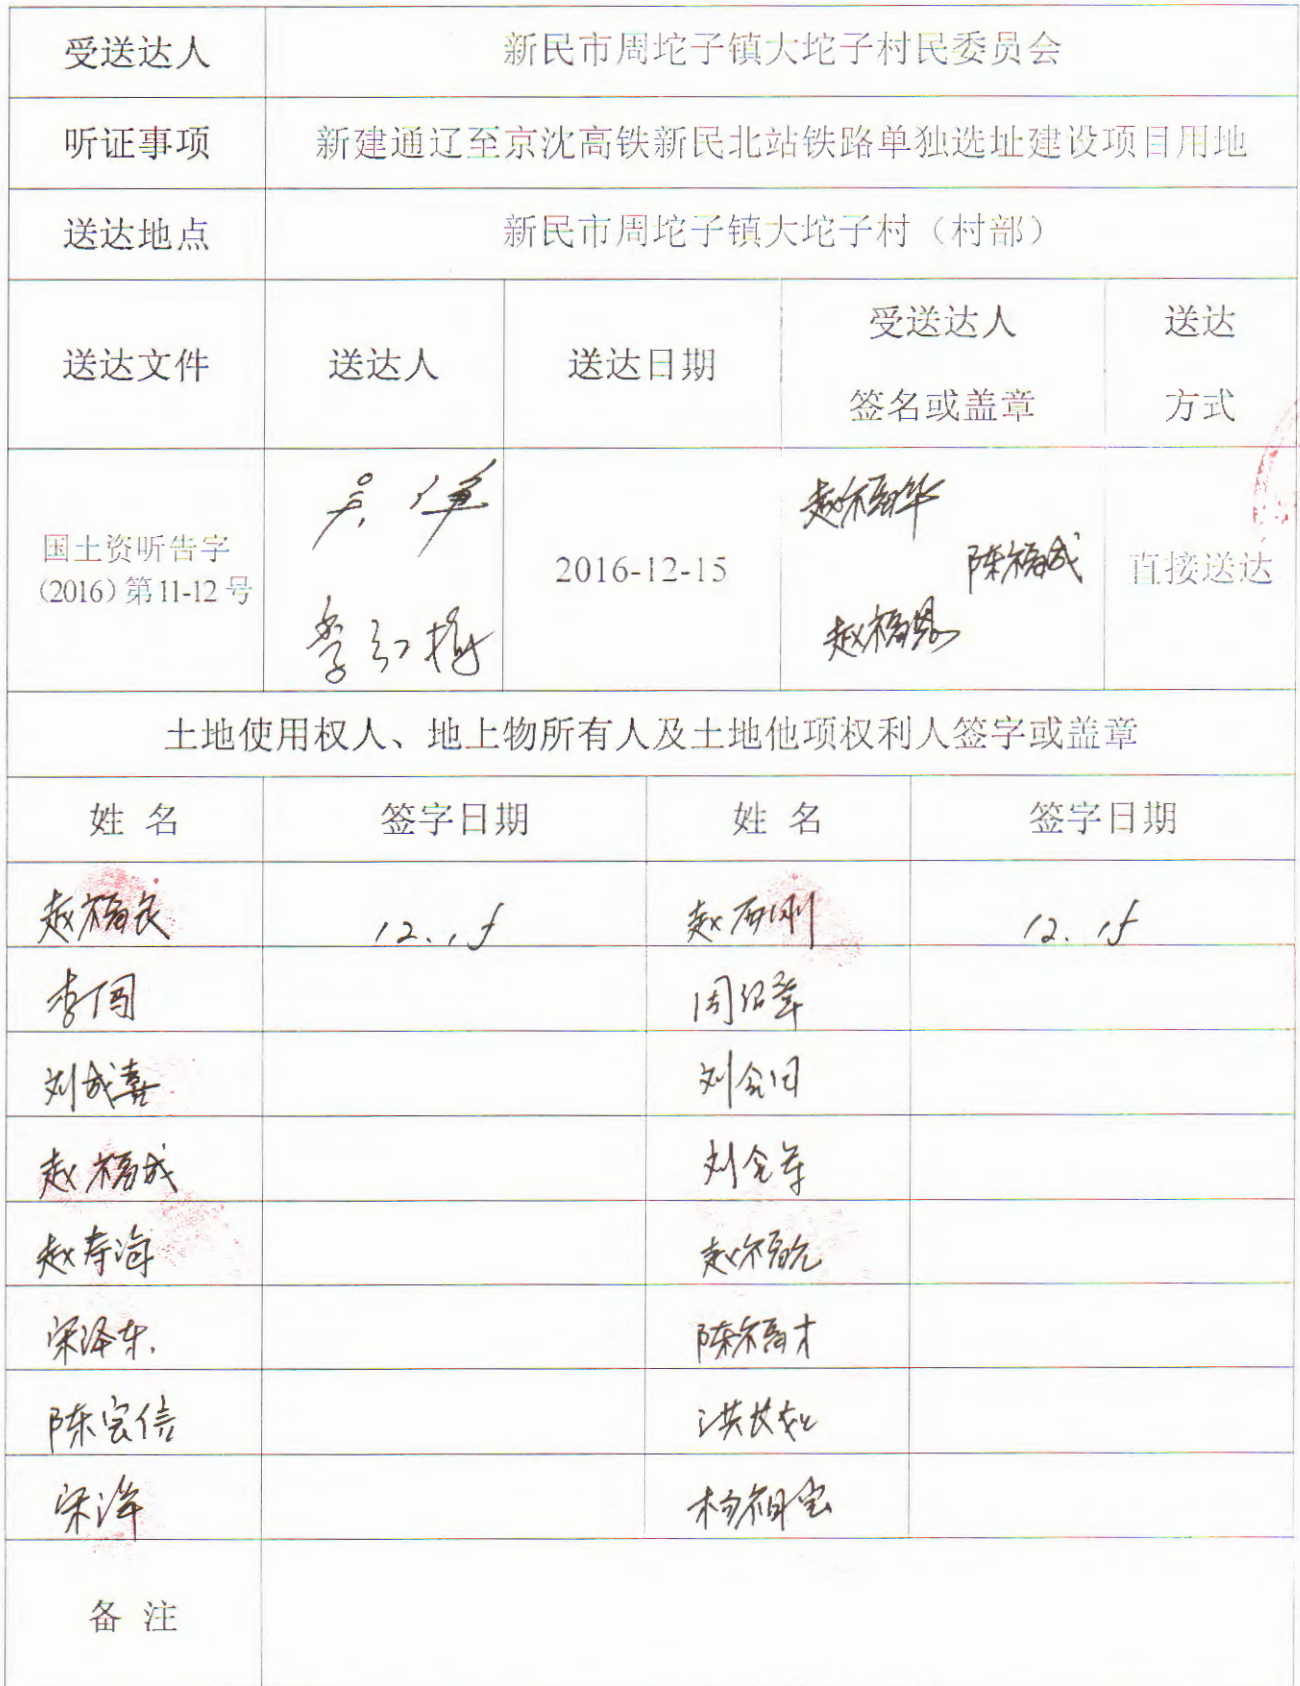 受送达人 新民市周坨子镇大坨子村民委员会
听证事项 新建通辽至京沈高铁新民北站铁路单独选址建设项目用地
送达地点 新民市周坨子镇大坨子村（村部）
送达文件 送达人 送达日期 受送达人 签名或盖章 送达 方式
国土资听告字
（2016）第11-12号
李红梅
2016-12-15
赵福华
陈福成
赵福恩
直接送达
土地使用权人、地上物所有人及土地他项权利人签字或盖章
姓 名 签字日期 姓 名 签字日期
赵福良 12.15 赵 刚 12.15
李闯 周绍
刘成喜 刘会
赵福成 刘会军
赵寿海 赵福
宋泽东 陈福才
陈宝信 洪
宋洋 杨相宝
备 注